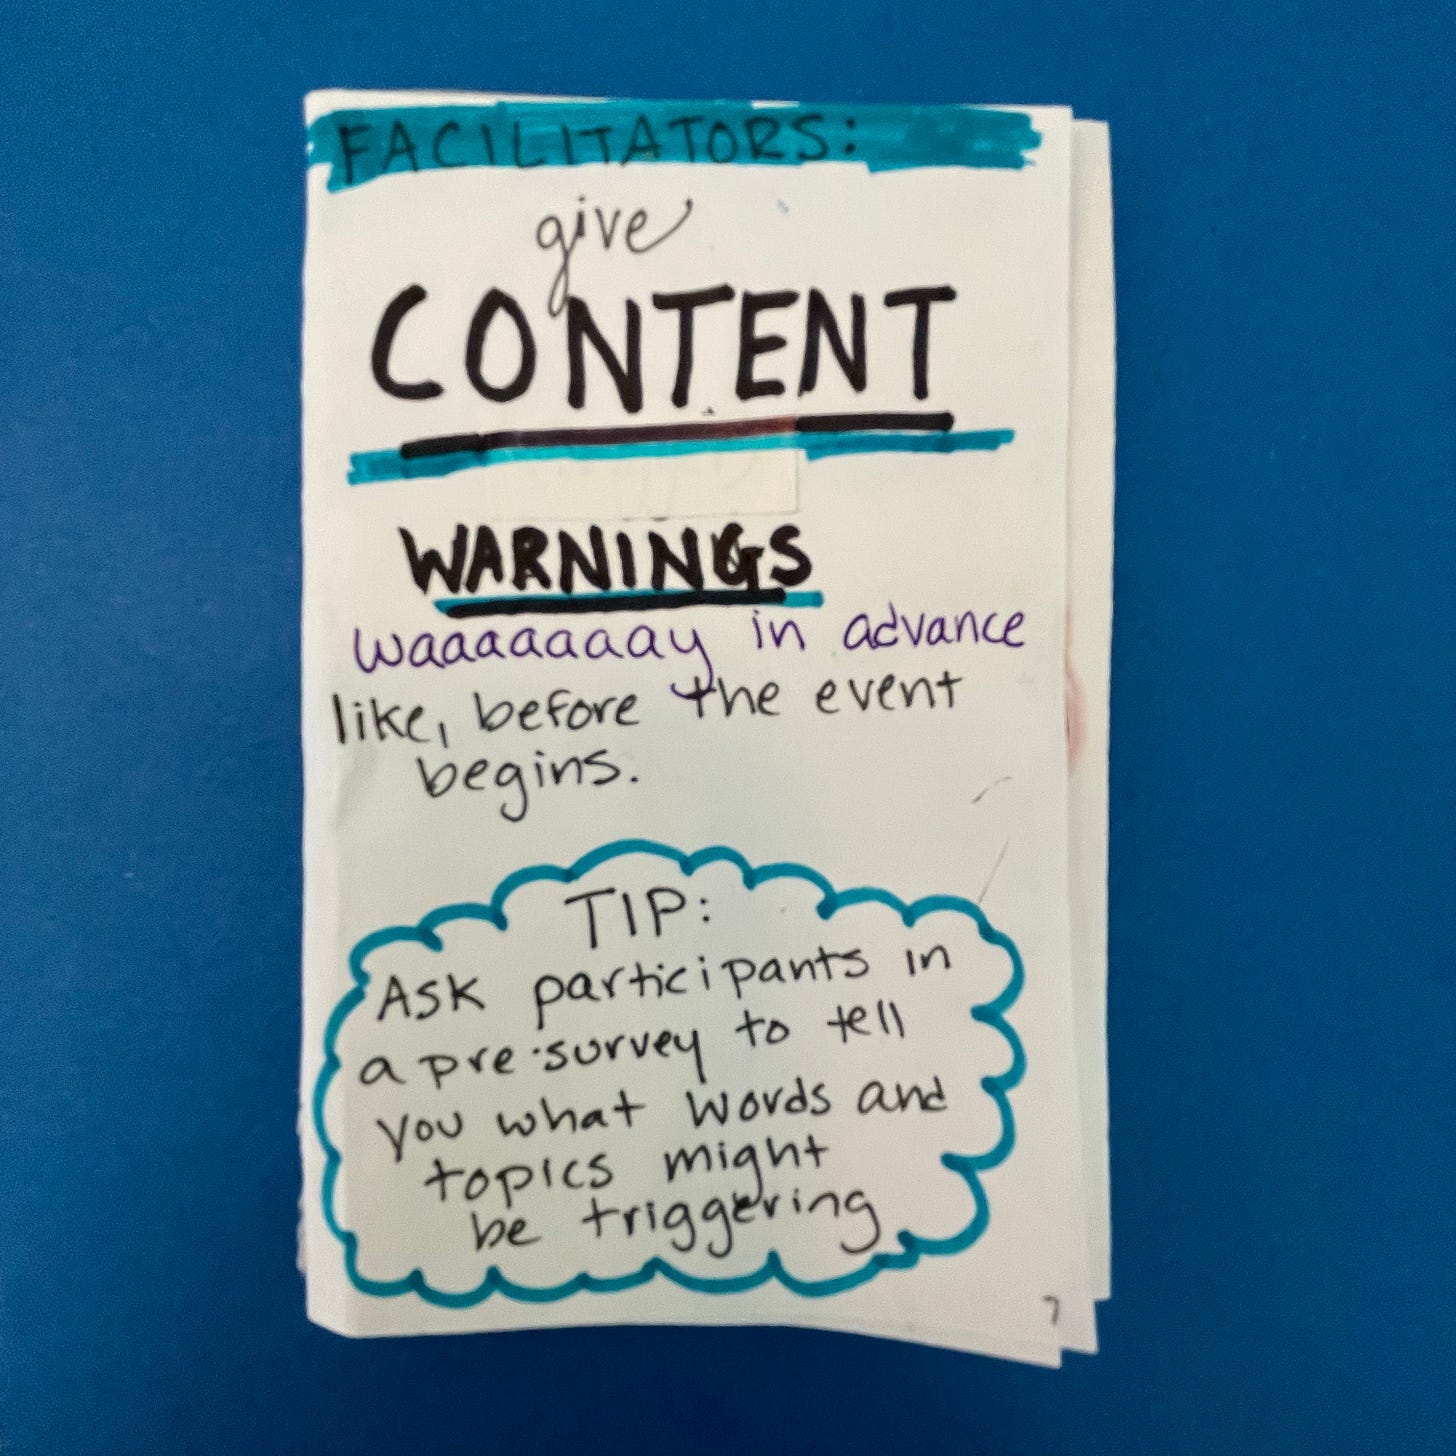 FACILITATORS:
give
CONTENT
WARNINGS
waaaaaaay in advance
like, before the event
begins.
TIP:
Ask participants in
a pre-survey to tell
you what words and
topics might
be triggering
7